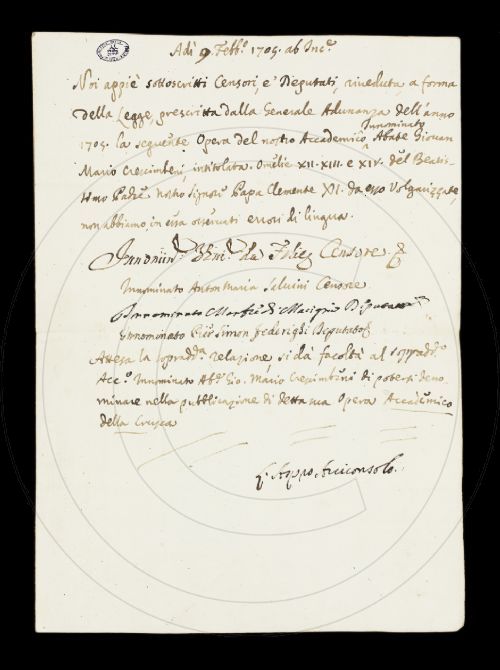 Adì 9 Febb.º 1705. ab Inc.e
Noi appiè sottoscritti Censori, e Deputati, riveduta a forma
della Legge, prescritta dalla Generale Adunanza dell'anno
Innominato
1705. la seguente Opera del nostro Accademico Abate Giovan
Mario Crescimbeni intitolata. Omelie XII. XIII. e XIV. del Beatis-
simo Padre nostro Signore Papa Clemente XI. da esso Volgarizzate,
non abbiamo in essa osservati errori di lingua.
Censore.
Innominato Anton Maria Salvini Censore.
Innominato Deputato
Innominato Simon Federighi Deputato
Attesa la sopradd.ta relazione, si dà facoltà al sopradd.º
Acc.º Innominato Ab.e Gio. Mario Crescimbeni di potersi deno-
minare nella pubblicazione di detta sua Opera Accademico
della Crusca
Arciconsolo.